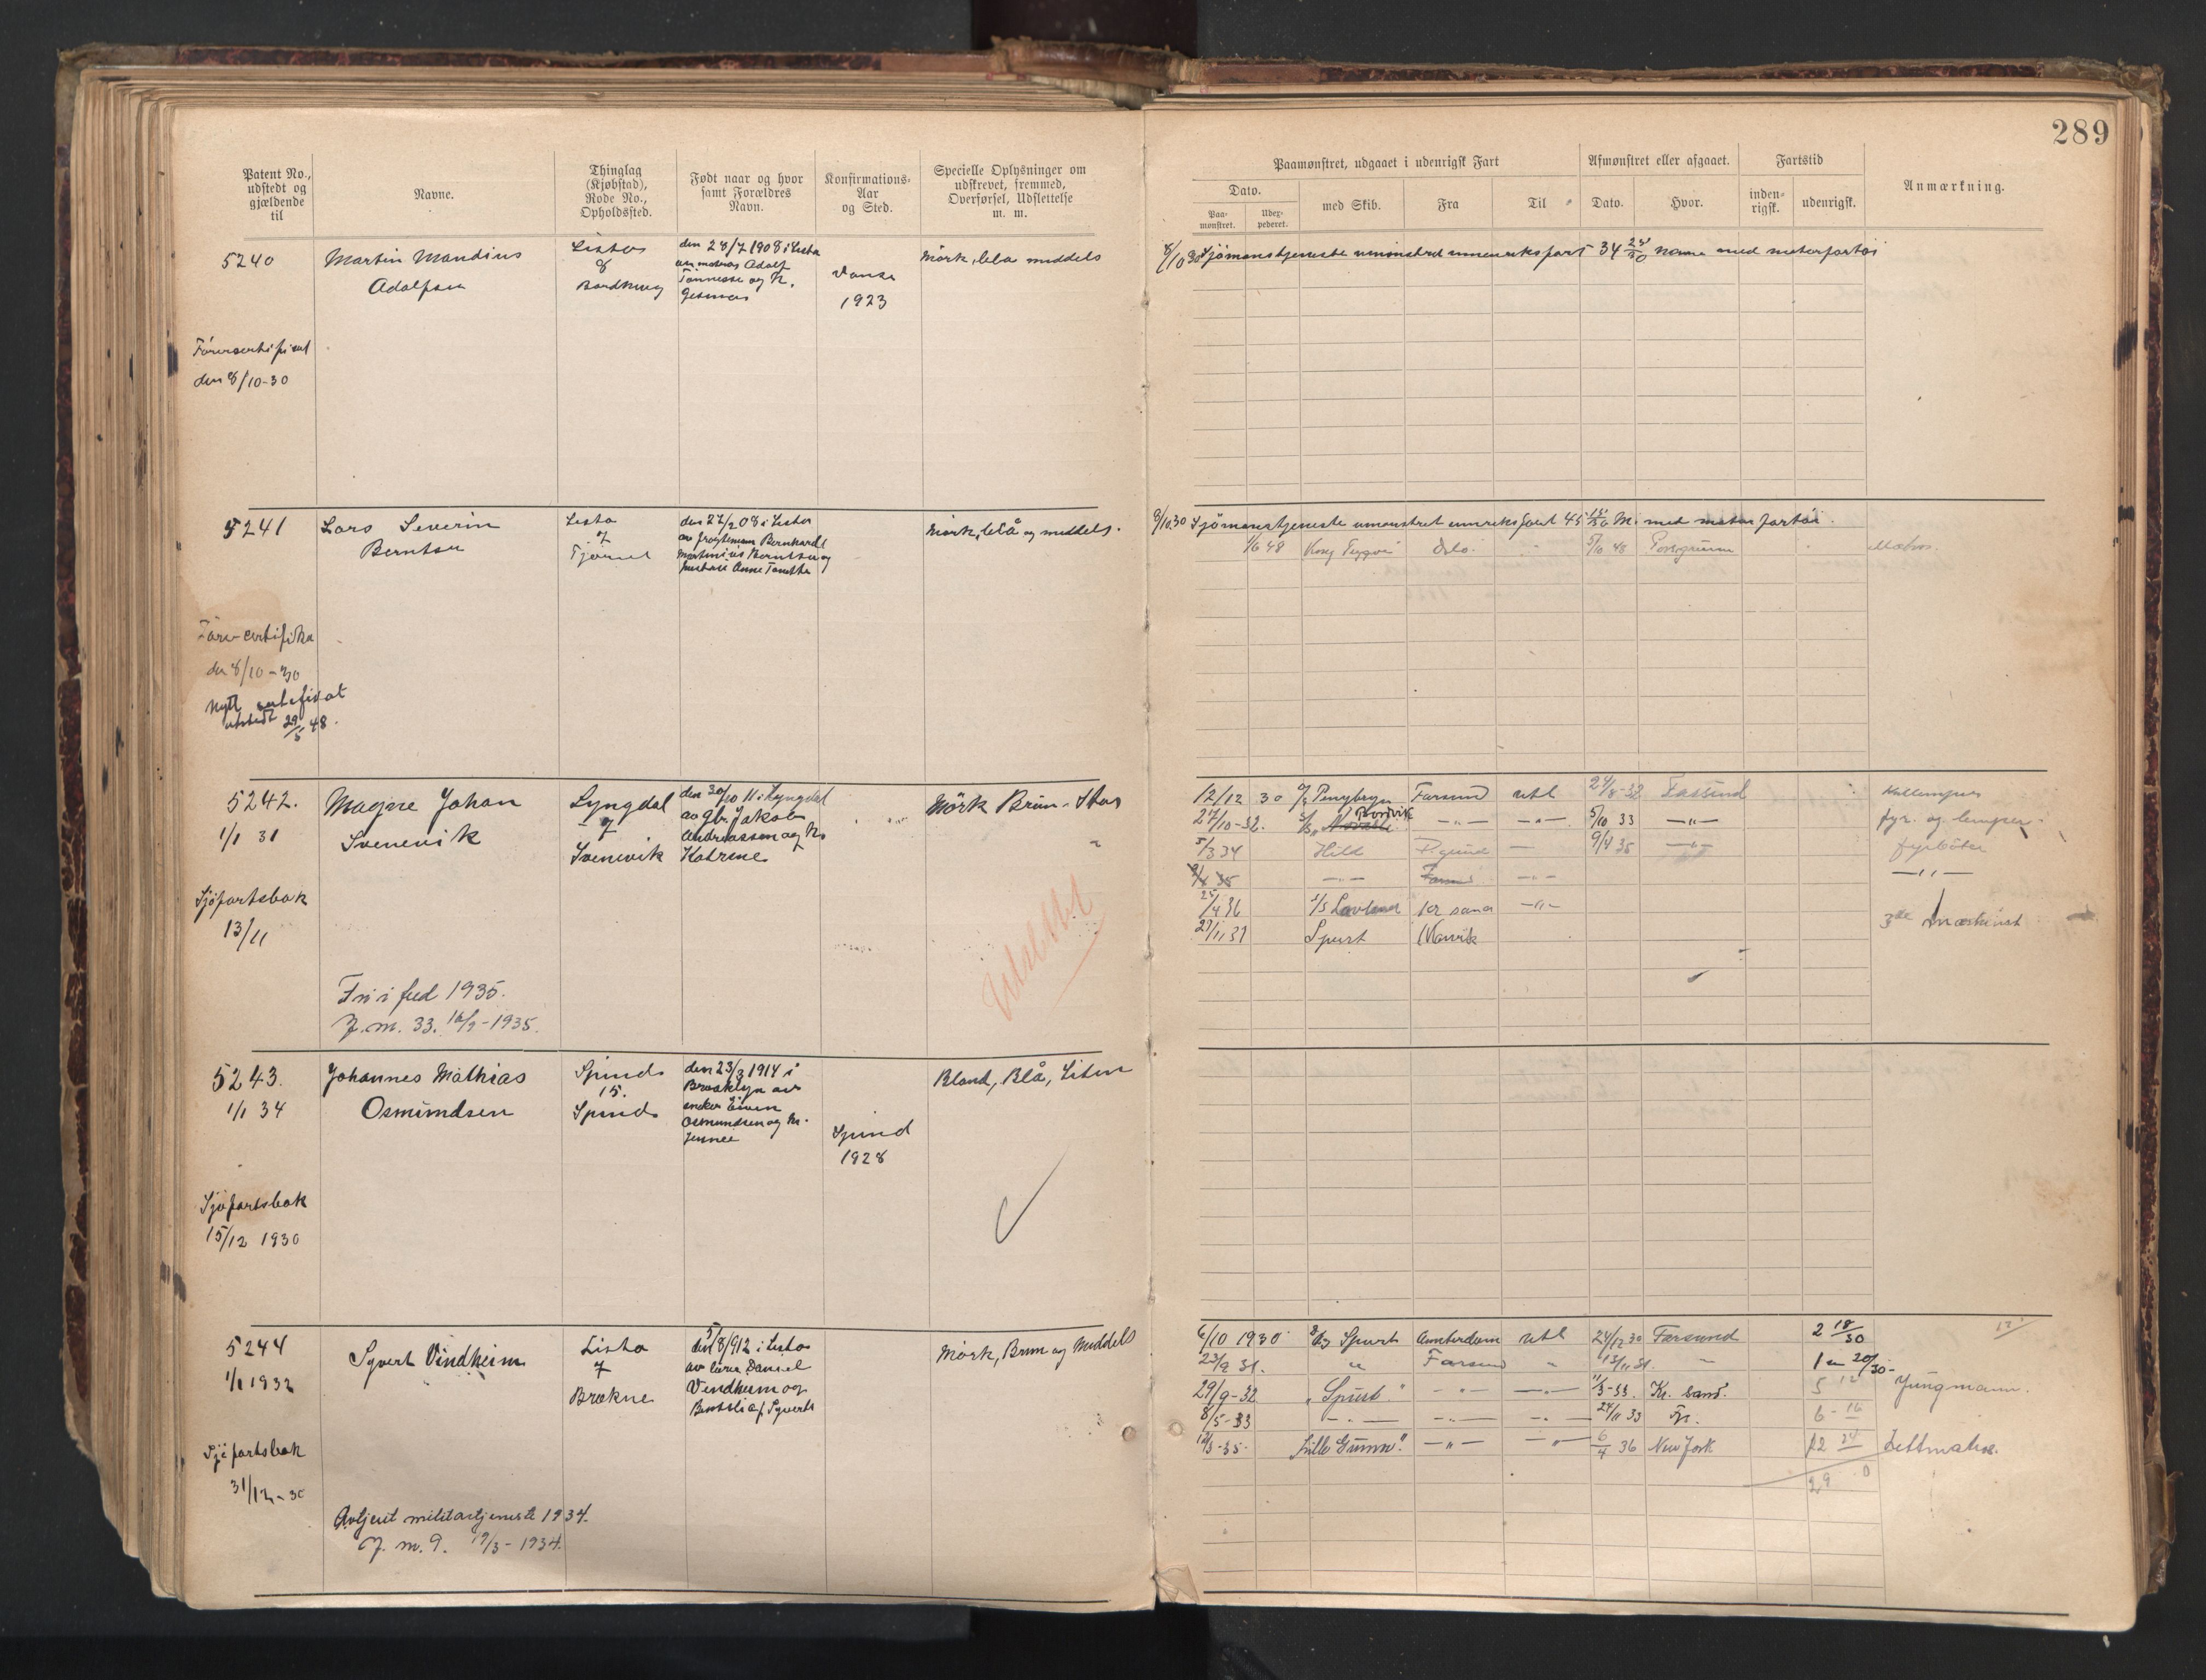 289
Patent No.,
udstedt og
gjældende
til
Navne.
Thinglag
(Kjøbstad),
Rode No.,
Opholdssted.
Født naar og hvor
samt Forældres
Navn.
Konfirmations-
Aar
og Sted.
Specielle Oplysninger om
udskrevet, fremmed,
Overførsel, Udslettelse
m. m.
Paamønstret, udgaaet i udenrigsk Fart
Dato.
Paa-
mønstret.
Udex-
pederet.
med Skib.
Fra
Til
Afmønstret eller afgaaet.
Dato.
Hvor.
Fartstid
inden-
rigsk.
udenrigsk.
Anmærkning.
5240
Martin Mandius
Adolfsen
Lista
8
den 28/7 1908 i Lista
av matros Adolf
Tønnesse og h.
Vanse
1923
Mörk, blå middels
8/10 30 Sjömanstjeneste umönstret innenriksfart 34 28/30 med motorfartöi
Førersertifikat
den 8/10-30
5241
Lars Severin
Berntsen
Lista
7
Tjørve
den 27/2 08 i Lista
Bernhardt
Martinius Berntsen og
hustru Anne Tomine
Mörk, blå og middels.
8/10 30 Sjömanstjeneste umönstret innenriksfart 45 15/30 M. med motorfartöi.
1/6 48 Kong Trygve Oslo. 5/10 48 Porsgrunn Matros.
den 8/10-30
Nytt sertifikat
utstedt 29/5 48.
5242.
1/1 31
Magne Johan
Svenevik
Lyngdal
7
Svenevik
den 30/10 11 i Lyngdal
av gbr. Jakob
Andreassen og h.
Katrine
Mörk Brun - Stor
12/12 30 Penybryn Farsund utl 24/8-32 Farsund Kullemper
27/10-32. Nordvik —"— —"— 5/10 33 —"— fyr. og lemper
5/3 34 Hild — 9/4 35 —"— fyrböter
35 —"— —"— —"—
25/4 36 S/S kr sand —"— 3de maskinist
29/11 37 Spurt Narvik
Sjøfartsbok
13/11
Fri i fred 1935.
J.m. 33. 16/9-1935.
5243.
1/1 34
Johannes Mathias
Osmundsen
Spind
15.
Spind
den 23/3 1914 i
Brooklyn av
snekker Eiven
Osmundsen og h.
Jennee
Spind
1928
Blond, Blå, Liten
Sjøfartsbok
15/12 1930
5244
1/1 1932
Syvert Vindheim
Lista
7
Brekne
den 5/8/912 i Lista
av lærer Daniel
Vindheim og
Mörk, Brun og Middels
6/10 1930 Spurt Amsterdam utl 24/12 30 Farsund 2 18/30
23/9 31. " Farsund " 13/11 31. " 1 m 20/30-
29/9-32 "Spurt" —"— —"— 11/3-33 Kr. sand. 5 12 Jungmann.
8/5-33 —"— —"— —"— 24/11 33 6-16
"Lille Gunvor". —"— —"— 6/4 36 New York 12 24 Lettmatros.
29 0
Sjøfartsbok
31/12-30
Avtjent militærtjeneste 1934.
J. m. 9. 19/3-1934.